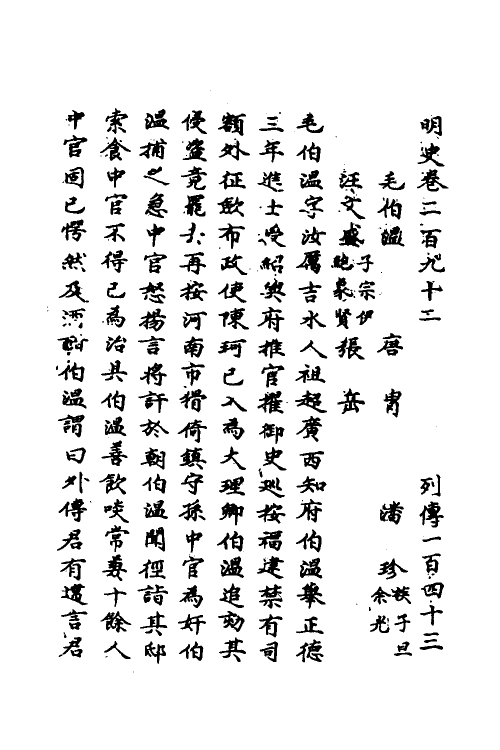 明史卷二百九十二　列傳一百四十三
毛伯溫　唐胄　潘珍族子旦余光
汪文盛子宗伊鮑象賢張岳
毛伯溫字汝厲吉水人祖超廣西知府伯溫舉正德
三年進士受紹興府推官擢御史巡按福建禁有司
額外征歛布政使陳珂已入為大理卿伯溫追劾其
侵盜竟罷去再按河南市猾倚鎮守孫中官為奸伯
溫捕之急中官怒揚言將訐於朝伯溫聞徑詣其邸
索食中官不得已為治具伯溫善飲啖常兼十餘人
中官固已愕然及酒酣伯溫謂曰外傳君有違言君